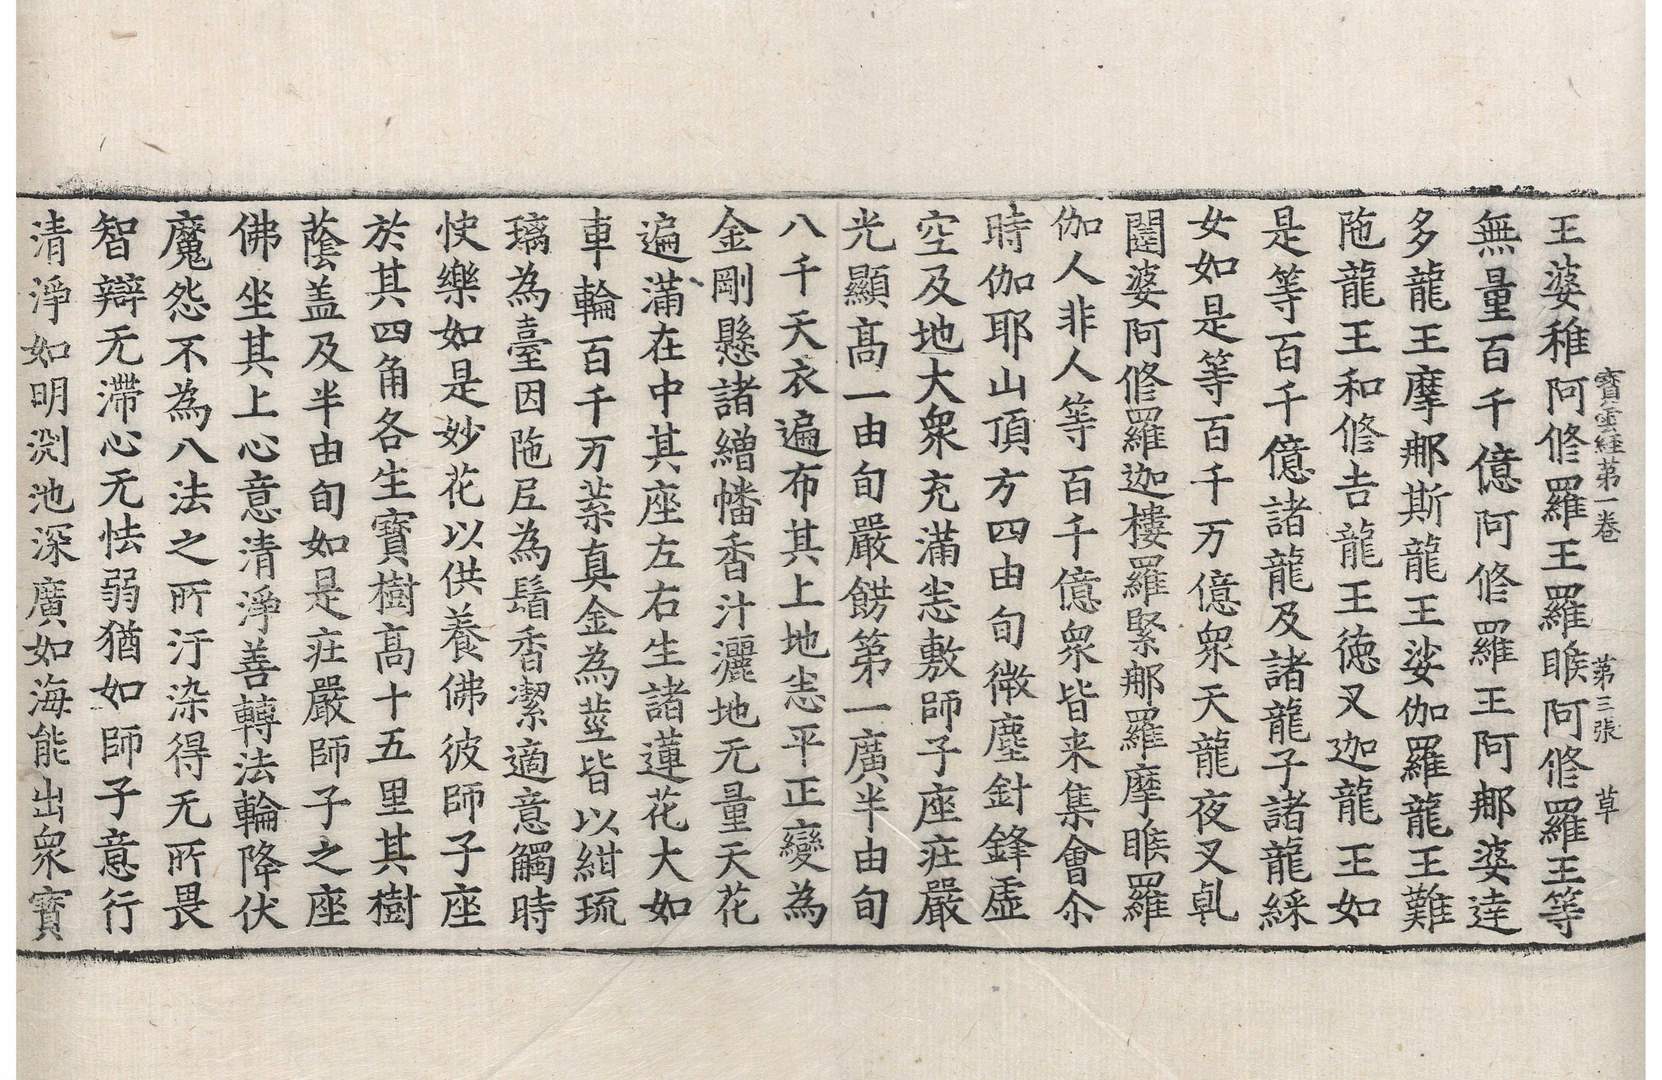 寶雲經第一卷 第三張 草
王婆稚阿修羅王羅睺阿修羅王等
無量百千億阿修羅王阿那婆達
多龍王摩那斯龍王娑伽羅龍王難
陁龍王和修吉龍王德叉迦龍王如
是等百千億諸龍及諸龍子諸龍婇
女如是等百千万億衆天龍夜叉乹
闥婆阿修羅迦樓羅緊那羅摩睺羅
伽人非人等百千億衆皆来集會尒
時伽耶山頂方四由旬微塵針鋒虛
空及地大衆充滿恙敷師子座莊嚴
光顯高一由旬嚴餝第一廣半由旬
八千天衣遍布其上地恙平正變為
金剛懸諸繒幡香汁灑地无量天花
遍滿在中其座左右生諸蓮花大如
車輪百千万葉真金為莖皆以紺琉
璃為臺因陁尼為鬚香潔適意觸時
快樂如是妙花以供養佛彼師子座
於其四角各生寶樹高十五里其樹
蔭盖及半由旬如是莊嚴師子之座
佛坐其上心意清淨善轉法輪降伏
魔怨不為八法之所汙染得无所畏
智辯无滯心无怯弱猶如師子意行
清淨如明渕池深廣如海能出衆寳